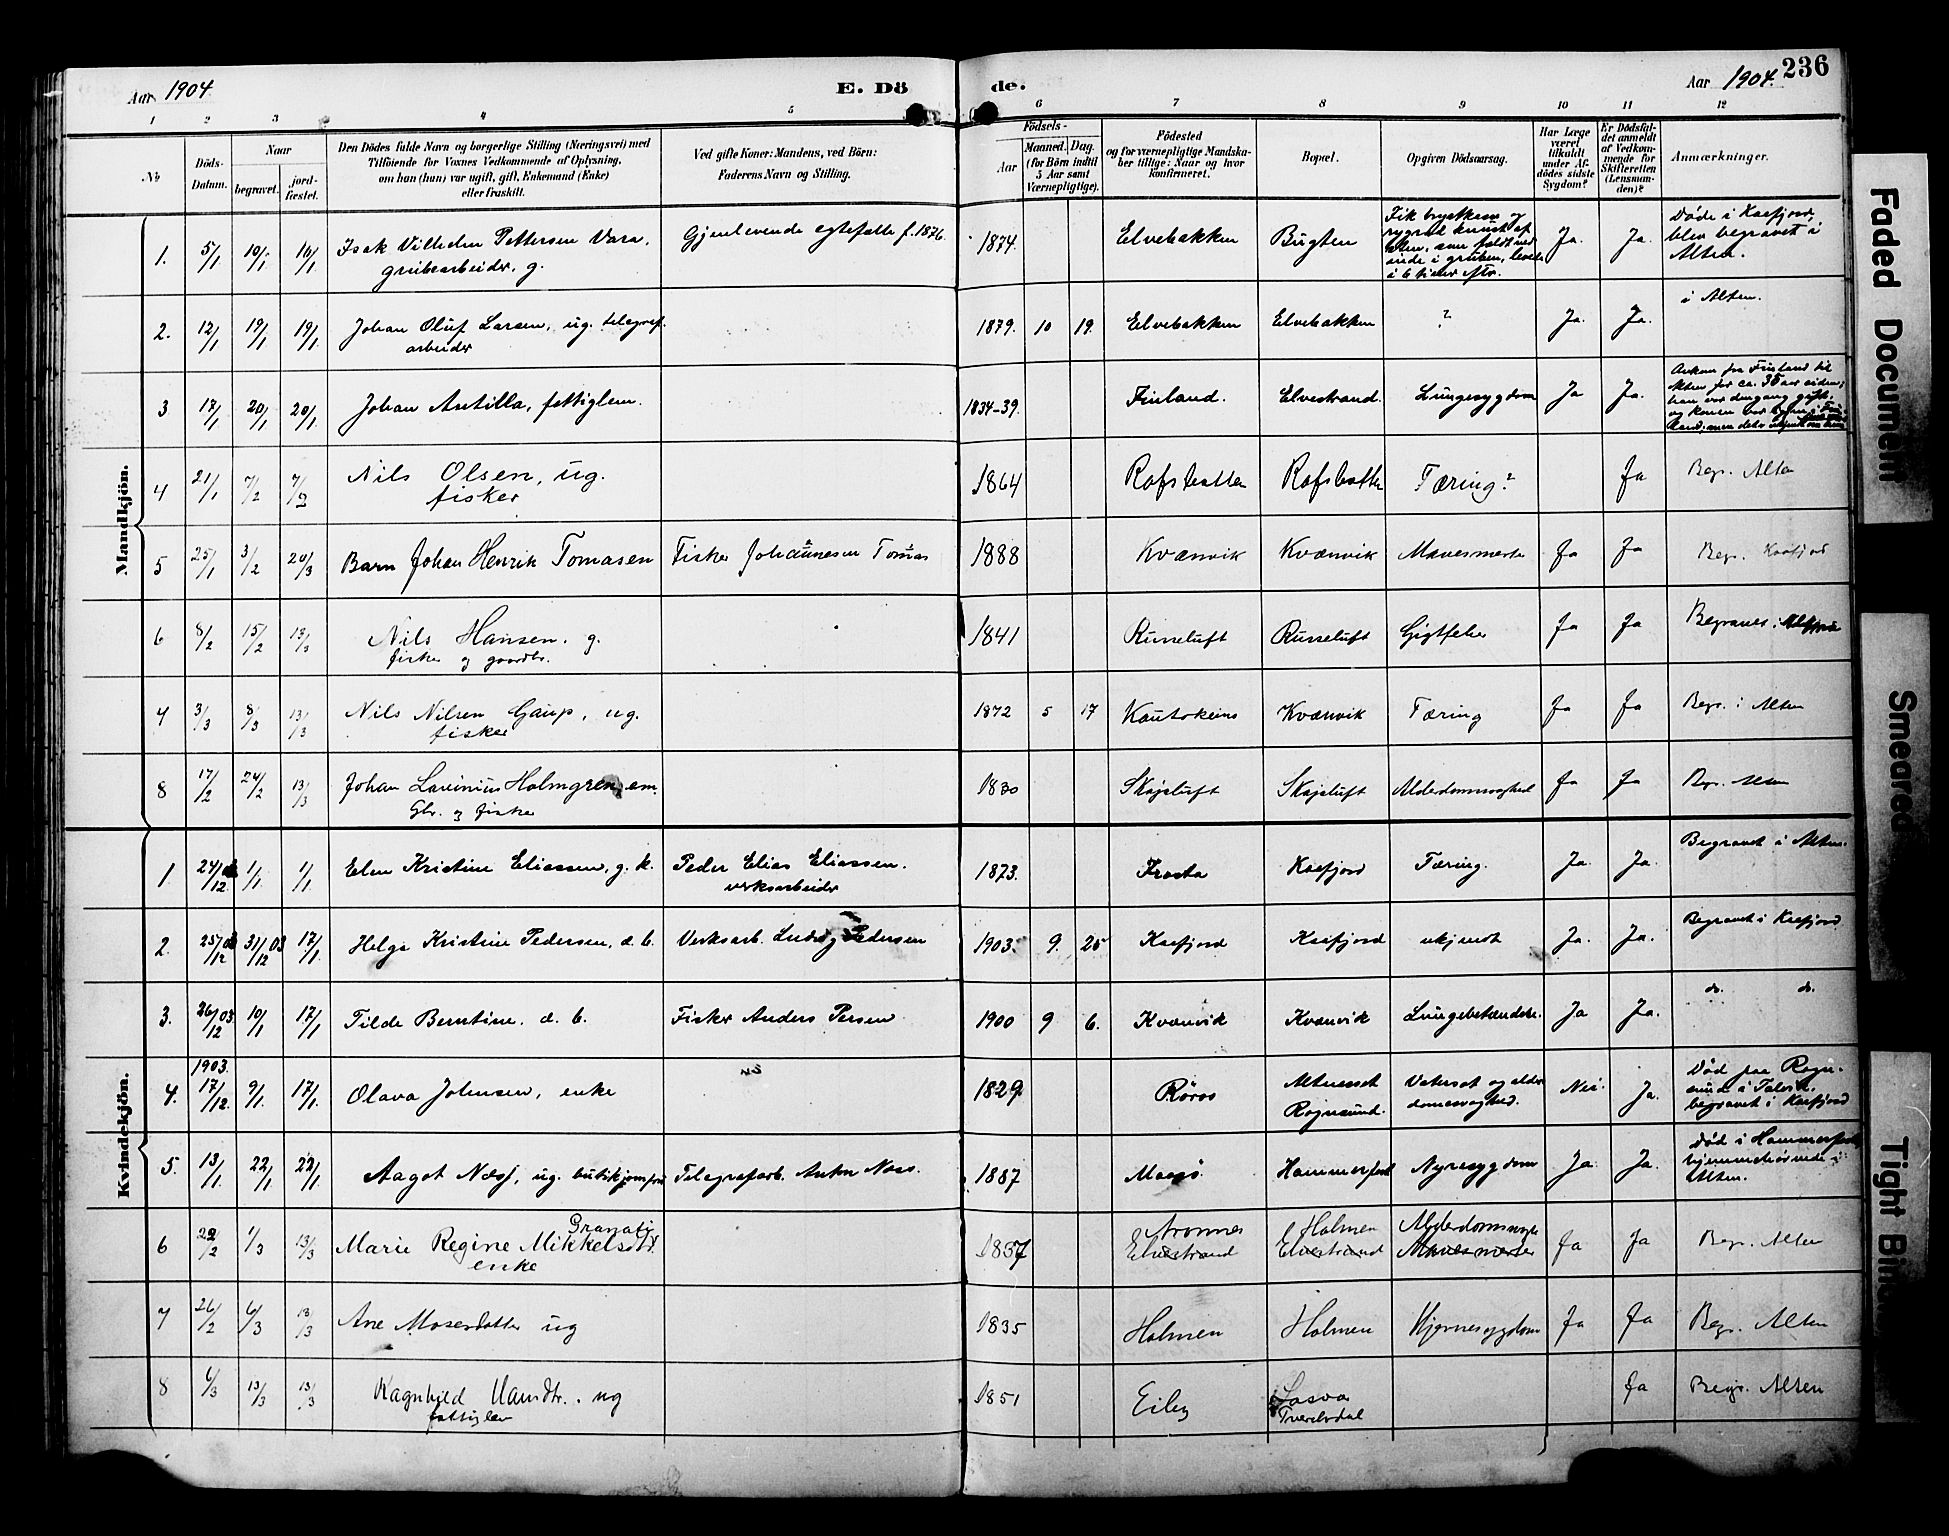 Aar 1904
E. Dö
de.
Aar 1904.
236
1 2 3 4 5 6 7 8 9 10 11 12
No
Döds-Datum.
Naar
begravet.
jord-fæstet.
Den Dödes fulde Navn og borgerlige Stilling (Næringsvei) med
Tilföiende for Voxnes Vedkommende af Oplysning,
om han (hun) var ugift, gift, Enkemand (Enke)
eller fraskilt.
Ved gifte Koner: Mandens, ved Börn:
Faderens Navn og Stilling.
Födsels-
Aar
Maaned. Dag.
(for Börn indtil
5 Aar samt
Værnepligtige).
Födested
og for værnepligtige Mandska-
ber tillige: Naar og hvor
konfirmeret.
Bopæl.
Opgiven Dödsaarsag.
Har Læge
været
tilkaldt
under Af-
dödes sidste
Sygdom?
Er Dödsfal-
det anmeldt
af Vedkom-
mende for
Skifteretten
(Lensman-
den)?
Anmærkninger.
Mandkjön.
1. 5/1 10/1 10/1 Isak Vilhelm Pettersen Vara, Gjenlevende egtefælle f. 1876. 1874. Elvebakken Bugten Ja. Ja. Döde i Kaafjord,
grubearbeider, g. blev begravet i
Alten.
sten, som faldt ned
inde i gruben, levede
i 6 timer efter.
2. 12/1 19/1 19/1 Johan Oluf Larsen, ug. telegraf. 1879. 10 19. Elvebakken Elvebakken ? Ja. Ja. i Alten.
arbeider
3. 17/1 20/1 20/1 Johan Antilla, fattiglem. 1834-39. Finland. Elvestrand. Lungesygdom Ja Ja. Ankom fra Finland til
Alten for ca. 35 aar siden;
han var dengang gift,
4 21/1 7/2 7/2 Nils Olsen, ug. 1864 Rafsbotten Rafsbotten Tæring? Ja Begr. Alten
fisker
5 25/1 3/2 20/3 Barn Johan Henrik Tomasen Fisker Johannesen Tomas 1888 Kvænvik Kvænvik Mavesmerte Ja Ja Begr. Kaafjord
6 8/2 15/2 13/3 Nils Hansen. g. 1841 Russeluft Russeluft Gigtfeber Ja Ja Begraves i
fisker og gaardbr.
7 3/3 8/3 13/3 Nils Nilsen Gaup, ug. 1872 5 17 Kautokeino Kvænvik Tæring Ja Ja Begr. i Alten
fisker
8 17/2 24/2 13/3 Johan Lavinius Holmgren, em. 1830 Skojeluft Skojeluft Alderdomssvaghed Ja Ja Begr. Alten
Gbr. og fisker
Kvindekjön.
1. 24/12 1/1 1/1 Elen Kristine Eliassen, g. k. Peder Elias Eliassen. 1873. Frosta Kaafjord Tæring. Ja. Ja. Begravet i Alten.
verksarbeider
2. 25/12 03 31/12 03 17/1. Helga Kristine Pedersen, d. b. Verksarb. Ludvig Pedersen 1903. 9. 25 Kaafjord Kaafjord ukjendt Ja. Ja. Begravet i Kaafjord
3. 26/12 03 10/1 17/1 Tilde Berntine, d. b. Fisker Anders Persen 1900 9 6. Kvænvik Kvænvik Lungebetændelse. Ja Ja. do. do.
1903.
4. 17/12. 9/1. 17/1. Olava Johnsen, enke 1829. Röros Altneset Vatersot og alder- Nei. Ja. Död paa Rogn-
Rognsund. domssvaghed. sund i Talvik,
begravet i Kaafjord
5. 13/1. 22/1 22/1. Aagot Næss, ug. butikjomfru Telegrafarb. Anton Næss. 1887 Maasö Hammerfest Nyresygdom Ja. Ja. Död i Hammerfest,
hjemmehörende i
Alten.
6 22/2 1/3 13/3 Marie Regine Mikkelsdtr. Granati 1837 Aronnes Holmen Alderdomssvagh Ja Ja Begr. Alten
enke Elvestrand Elvestrand Mavesmerter
7 26/2 6/3 13/3 Ane Mosesdatter ug 1835 Holmen Holmen Hjernesygdom Ja Ja Begr. Alten
8 6/3 13/3 13/3 Ragnhild ug 1851 Eiby Tverelvdal Ja Begr. Alten
fattiglem
Faded Document
Smeared
Tight Bin